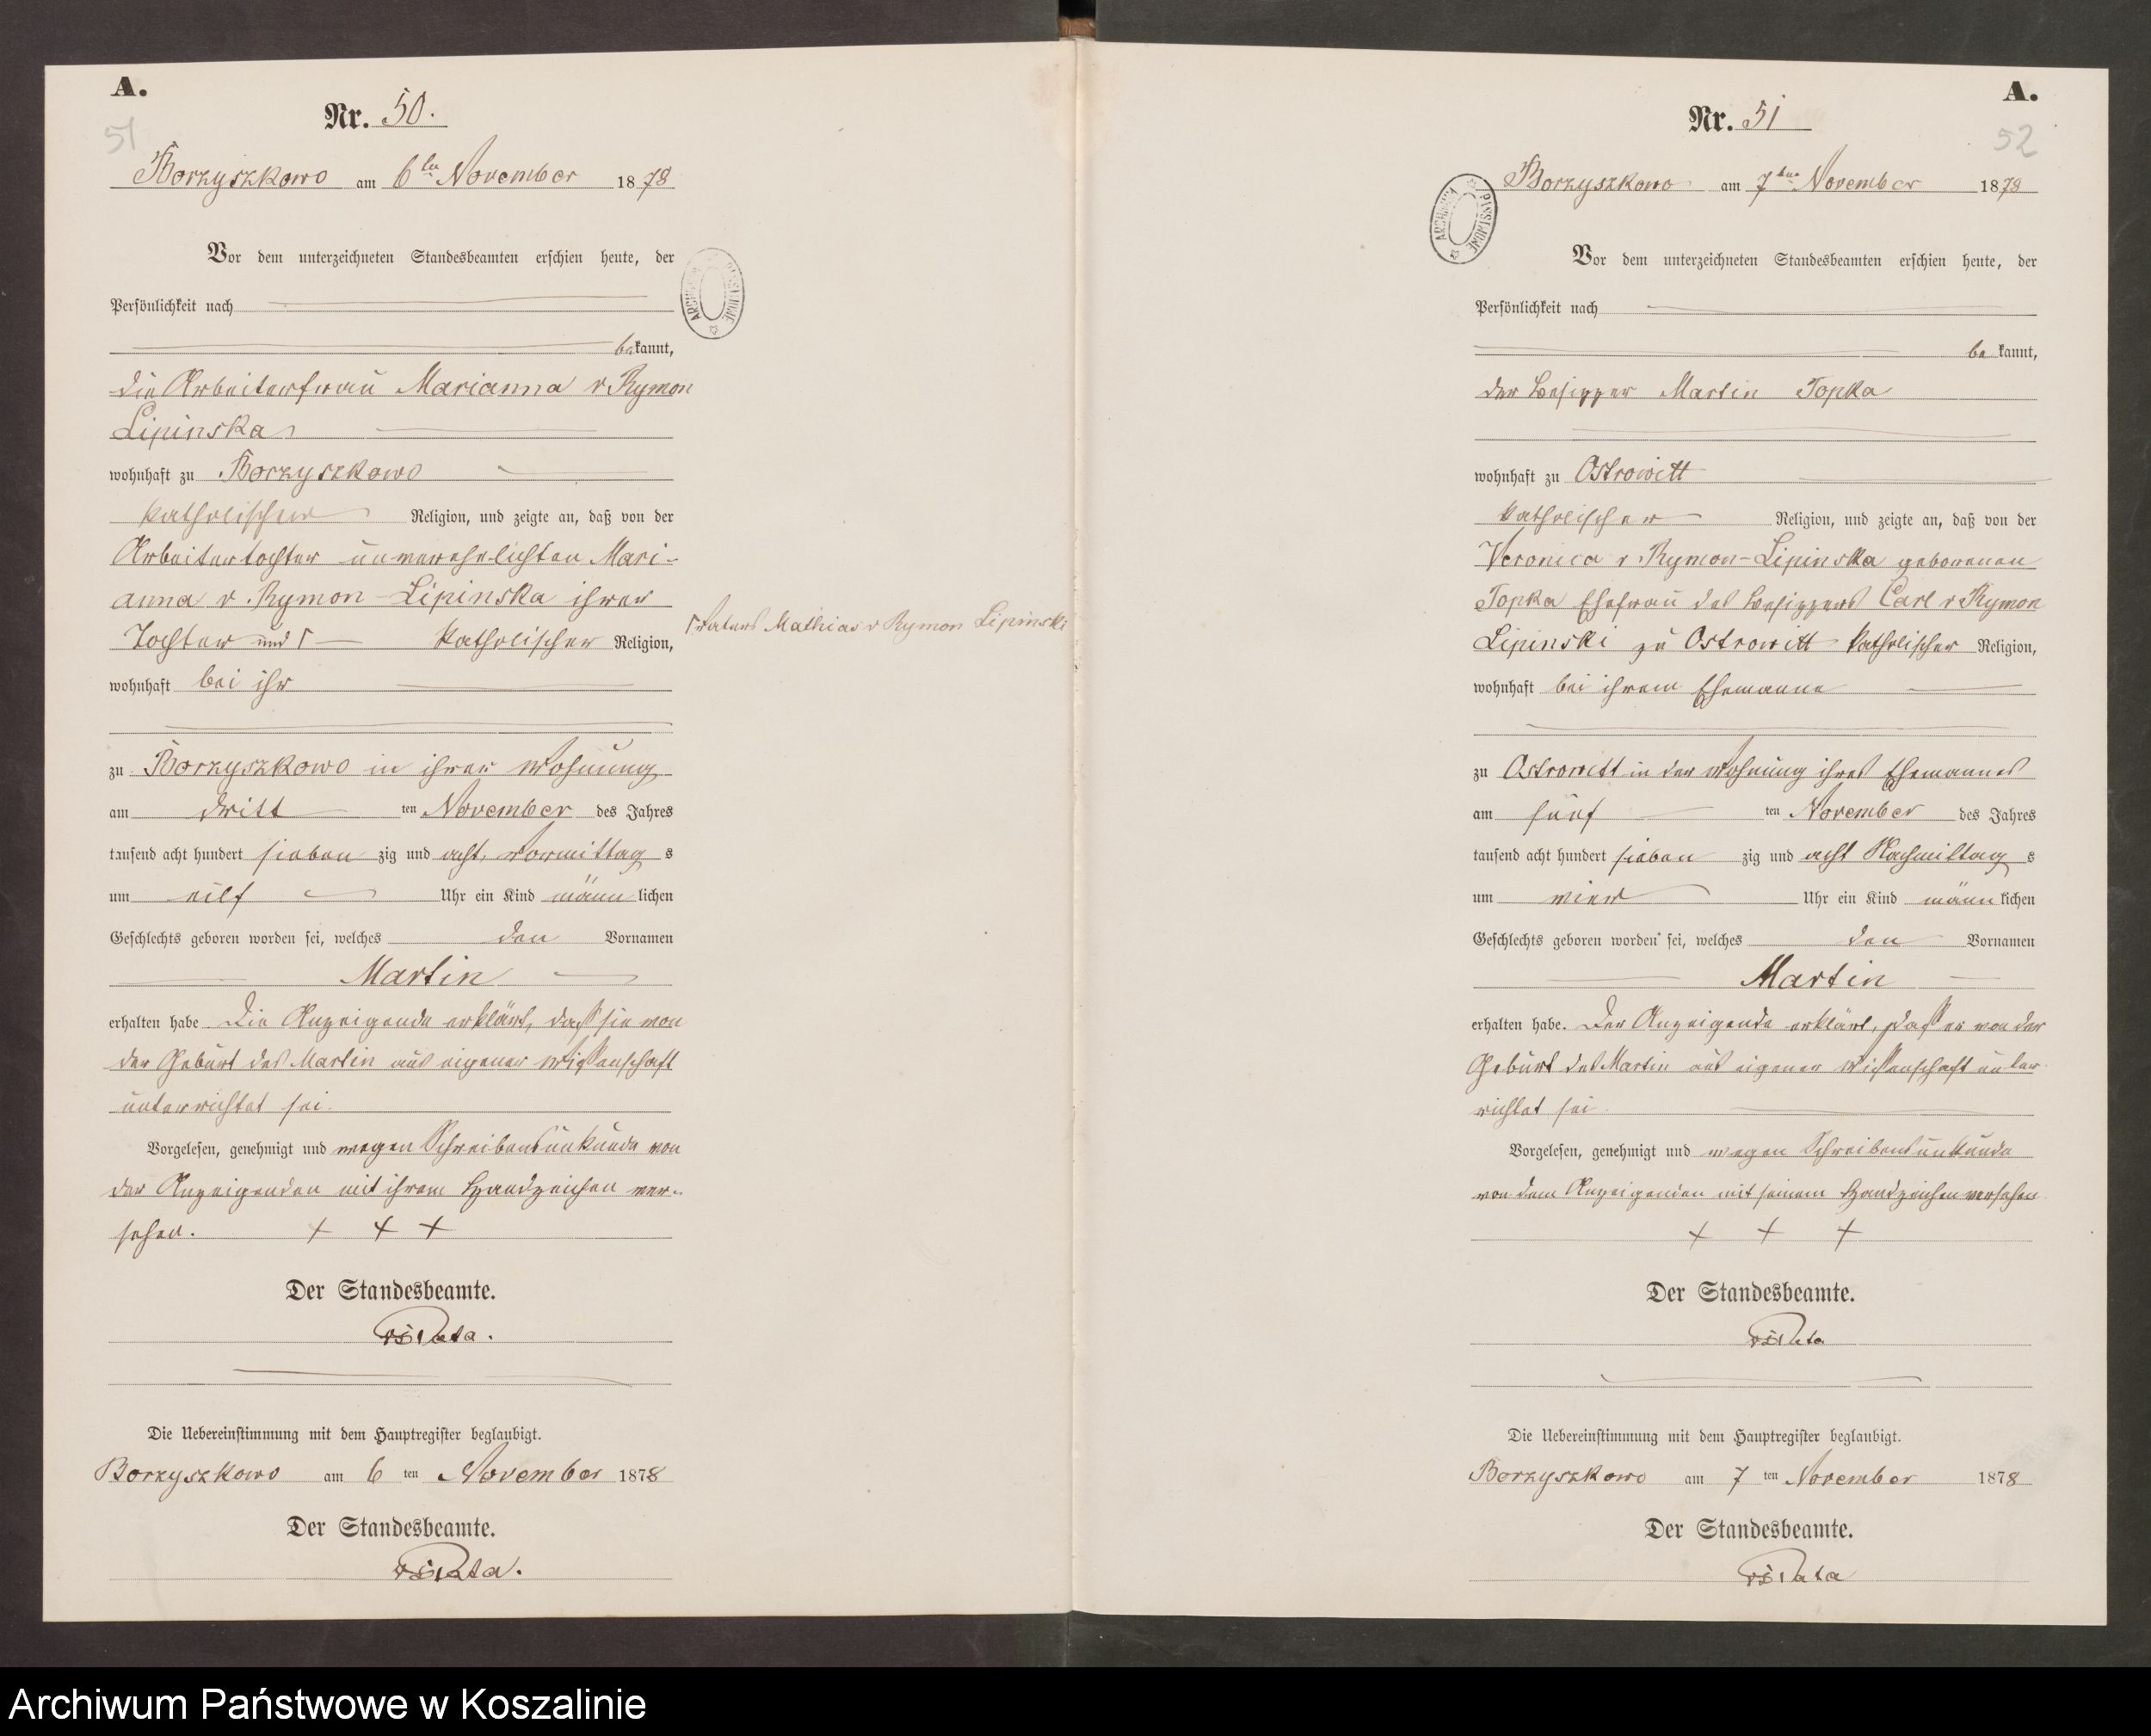 A.
Nr. 50.
51
Borzyszkowo am 6ten November 1878
Vor dem unterzeichneten Standesbeamten erschien heute, der
Persönlichkeit nach
bekannt,
die Arbeiterfrau Marianna v Rymon
Lipinska
wohnhaft zu Borzyszkowo
katholischer Religion, und zeigte an, daß von der
Arbeitertochter unverehelichten Mari-
anna v. Rymon-Lipinska ihrer
Tochter und katholischer Religion,
Vaters Mathias v Rymon Lipinski
wohnhaft bei ihr
zu Borzyszkowo in ihrer Wohnung
am dritt ten November des Jahres
tausend acht hundert sieben zig und acht, Vormittag s
um eilf Uhr ein Kind männ lichen
Geschlechts geboren worden sei, welches den Vornamen
Martin
erhalten habe Die Anzeigende erklärt, daß sie von
der Geburt des Martin aus eigener Wissenschaft
unterrichtet sei.
Vorgelesen, genehmigt und wegen Schreibensunkunde von
der Anzeigenden mit ihrem Handzeichen ver-
sehen. + + +
Der Standesbeamte.
Die Uebereinstimmung mit dem Hauptregister beglaubigt.
Borzyszkowo am 6 ten November 1878
Der Standesbeamte.
A.
Nr. 51
52
Borzyszkowo am 7ten November 1878
ARCHIWUM PAŃSTWOWE
Vor dem unterzeichneten Standesbeamten erschien heute, der
Persönlichkeit nach
be kannt,
der Besitzer Martin Topka
wohnhaft zu Ostrowitt
katholischer Religion, und zeigte an, daß von der
Veronica v Rymon-Lipinska geborenen
Topka Ehefrau des Besitzers Carl v Rymon
Lipinski zu Ostrowitt katholischer Religion,
wohnhaft bei ihrem Ehemanne
zu Ostrowitt in der Wohnung ihres Ehemannes
am fünf ten November des Jahres
tausend acht hundert sieben zig und acht Nachmittag s
um vier Uhr ein Kind männ lichen
Geschlechts geboren worden sei, welches den Vornamen
Martin
erhalten habe. Der Anzeigende erklärt, daß er von der
Geburt des Martin aus eigener Wissenschaft unter
richtet sei.
Vorgelesen, genehmigt und wegen Schreibensunkunde
von dem Anzeigenden mit seinem Handzeichen versehen
+ + +
Der Standesbeamte.
Die Uebereinstimmung mit dem Hauptregister beglaubigt.
Borzyszkowo am 7 ten November 1878
Der Standesbeamte.
Archiwum Państwowe w Koszalinie